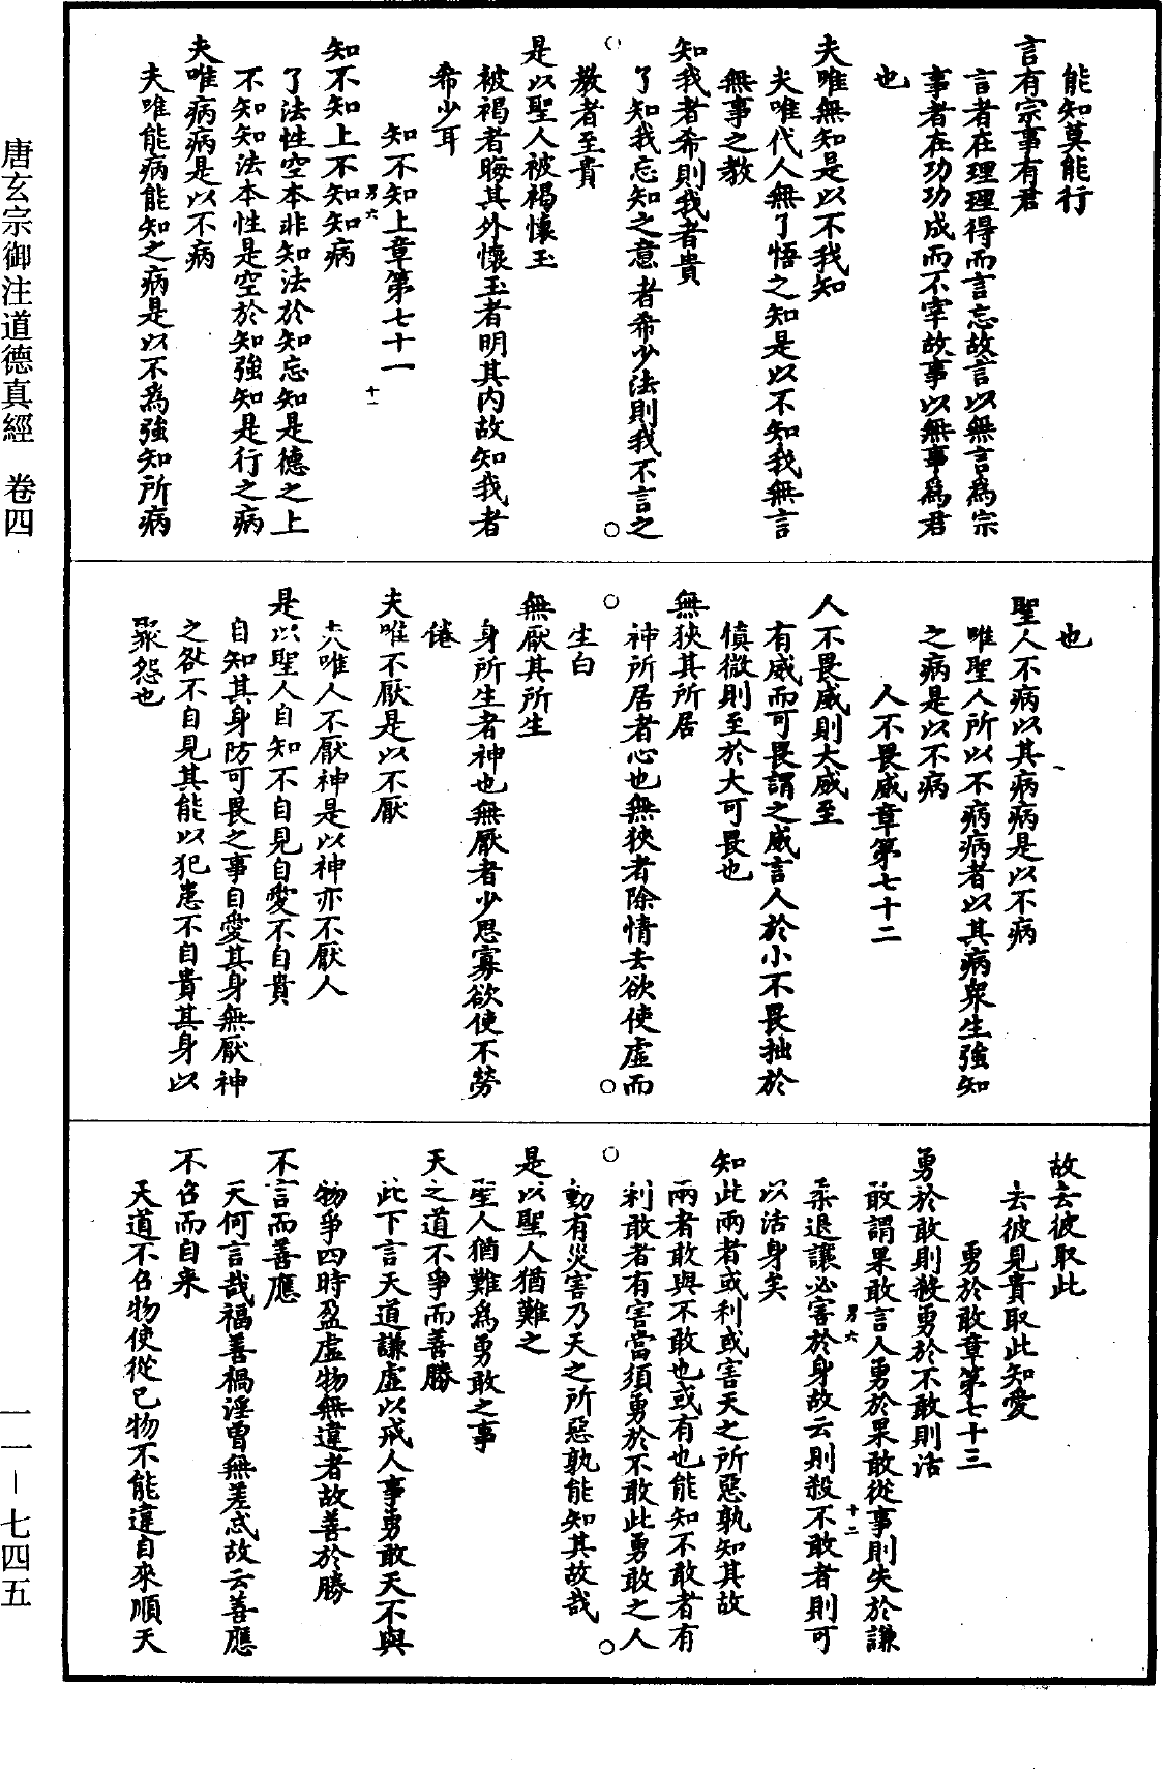 能知莫能行
言有宗事有君
言者在理理得而言忘故言以無言為宗
事者在功功成而不宰故事以無事為君
也
夫唯無知是以不我知
夫唯代人無了悟之知是以不知我無言
無事之教
知我者希則我者貴
了知我忘知之意者希少法則我不言之
教者至貴
是以聖人被褐懷玉
被褐者晦其外懷玉者明其內故知我者
希少耳
知不知上章第七十一
男六
十一
知不知上不知知病
了法性空本非知法於知忘知是德之上
不知知法本性是空於知強知是行之病
夫唯病病是以不病
夫唯能病能知之病是以不為強知所病
也
聖人不病以其病病是以不病
唯聖人所以不病病者以其病眾生強知
之病是以不病
人不畏威章第七十二
人不畏威則大威至
有威而可畏謂之威言人於小不畏拙於
慎微則至於大可畏也
無狹其所居
神所居者心也無狹者除情去欲使虛而
生白
無厭其所生
身所生者神也無厭者少思寡欲使不勞
倦
夫唯不厭是以不厭
夫唯人不厭神是以神亦不厭人
是以聖人自知不自見自愛不自貴
自知其身防可畏之事自愛其身無厭神
之咎不自見其能以犯患不自貴其身以
聚怨也
故去彼取此
去彼見貴取此知愛
勇於敢章第七十三
勇於敢則殺勇於不敢則活
敢謂果敢言人勇於果敢從事則失於謙
男六
十二
柔退讓必害於身故云則殺不敢者則可
以活身矣
知此兩者或利或害天之所惡孰知其故
兩者敢與不敢也或有也能知不敢者有
利敢者有害當須勇於不敢此勇敢之人
動有災害乃天之所惡孰能知其故哉
是以聖人猶難之
聖人猶難為勇敢之事
天之道不爭而善勝
此下言天道謙虛以戒人事勇敢天不與
物爭四時盈虛物無違者故善於勝
不言而善應
天何言哉福善禍淫曾無差忒故云善應
不召而自來
天道不召物使從己物不能違自來順天
唐玄宗御注道德真經　卷四
一一－七四五